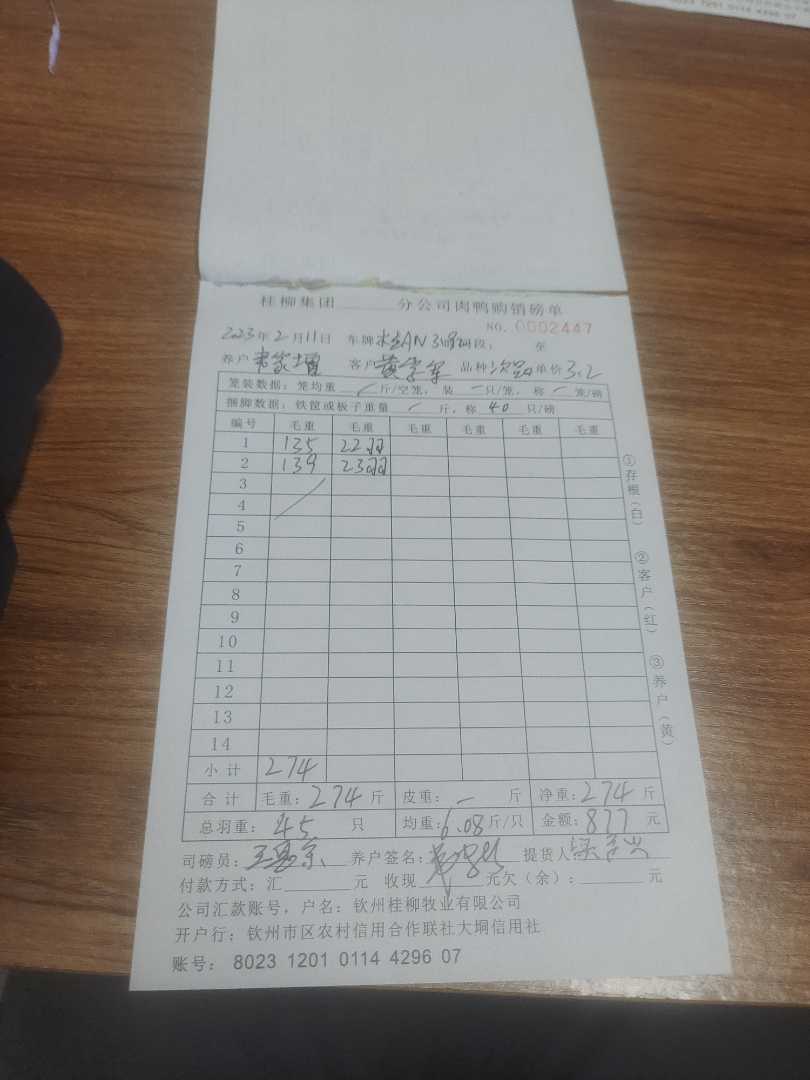 8023 1201 0114 4296 07
桂柳集团______分公司肉鸭购销磅单
NO. 0002447
2023年2月11日 车牌 段： 至
养户 韦家增 客户 黄 品种 次品 单价 3.2
笼装数据：笼均重 / 斤/空笼，装 一 只/笼，称 一 笼/磅
捆脚数据：铁筐或板子重量 / 斤，称 40 只/磅
编号 毛重 毛重 毛重 毛重 毛重 毛重
1 135 22羽
2 139 23羽
3
4
5
6
7
8
9
10
11
12
13
14
小计 274
合计 毛重：274 斤 皮重：一 斤 净重：274 斤
总羽重：45 只 均重：6.08 斤/只 金额：877 元
司磅员： 养户签名： 提货人
付款方式：汇______元 收现______元欠（余）：______元
公司汇款账号，户名：钦州桂柳牧业有限公司
开户行：钦州市区农村信用合作联社大垌信用社
账号： 8023 1201 0114 4296 07
①存根（白）
②客户（红）
③养户（黄）